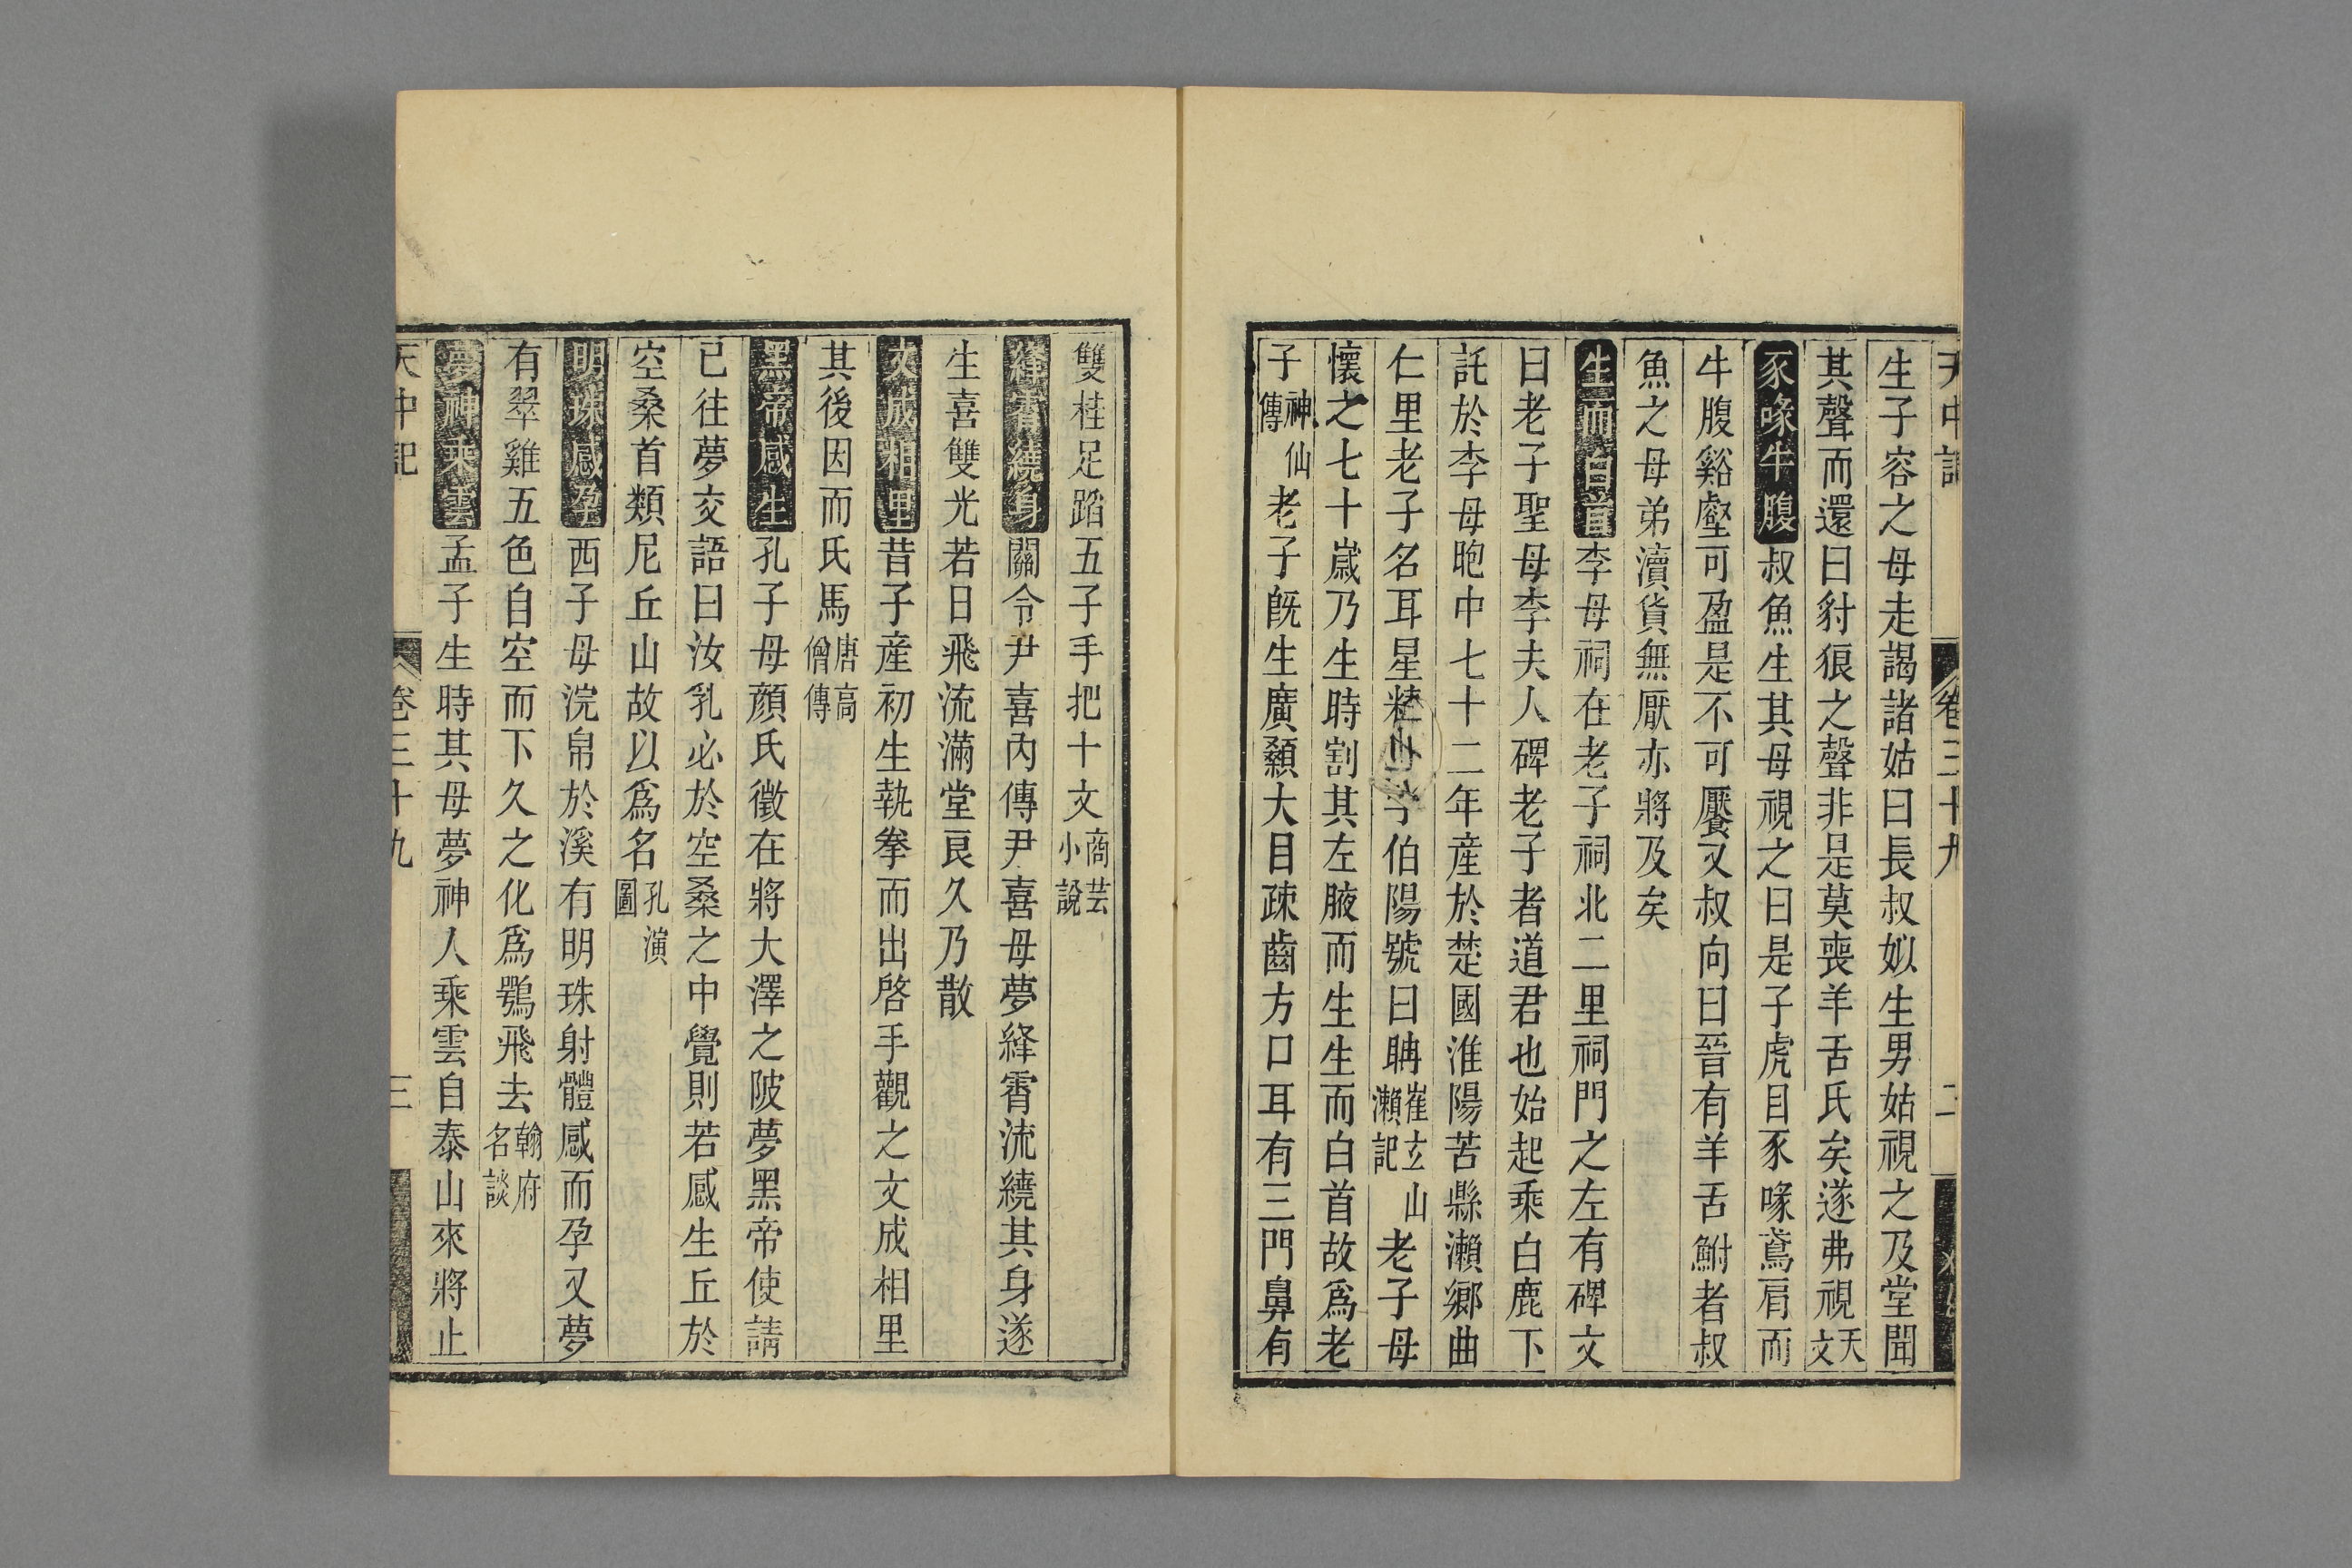 天中記 卷三十九 二
生子容之母走謁諸姑曰長叔姒生男姑視之及堂聞
其聲而還曰豺狼之聲非是莫喪羊舌氏矣遂弗視天文
豕喙牛腹叔魚生其母視之曰是子虎目豕喙鳶肩而
牛腹谿壑可盈是不可饜又叔向曰晉有羊舌鮒者叔
魚之母弟瀆貨無厭亦將及矣
生而白首李母祠在老子祠北二里祠門之左有碑文
曰老子聖母李夫人碑老子者道君也始起乘白鹿下
託於李母胞中七十二年産於楚國淮陽苦縣瀨鄉曲
仁里老子名耳星精也字伯陽號曰聃崔玄山瀨記老子母
懷之七十歲乃生時割其左腋而生生而白首故爲老
子神仙傳老子旣生廣顙大目疎齒方口耳有三門鼻有
雙柱足蹈五子手把十文商芸小說
絳霄繞身關令尹喜內傳尹喜母夢絳霄流繞其身遂
生喜雙光若日飛流滿堂良久乃散
文成相里昔子産初生執拳而出啓手觀之文成相里
其後因而氏馬唐高僧傳
黑帝感生孔子母顏氏徵在將大澤之陂夢黑帝使請
已往夢交語曰汝乳必於空桑之中覺則若感生丘於
空桑首類尼丘山故以爲名孔演圖
明珠感孕西子母浣帛於溪有明珠射體感而孕又夢
有翠雞五色自空而下久之化爲鶚飛去翰府名談
夢神乘雲孟子生時其母夢神人乘雲自泰山來將止
天中記 卷三十九 三